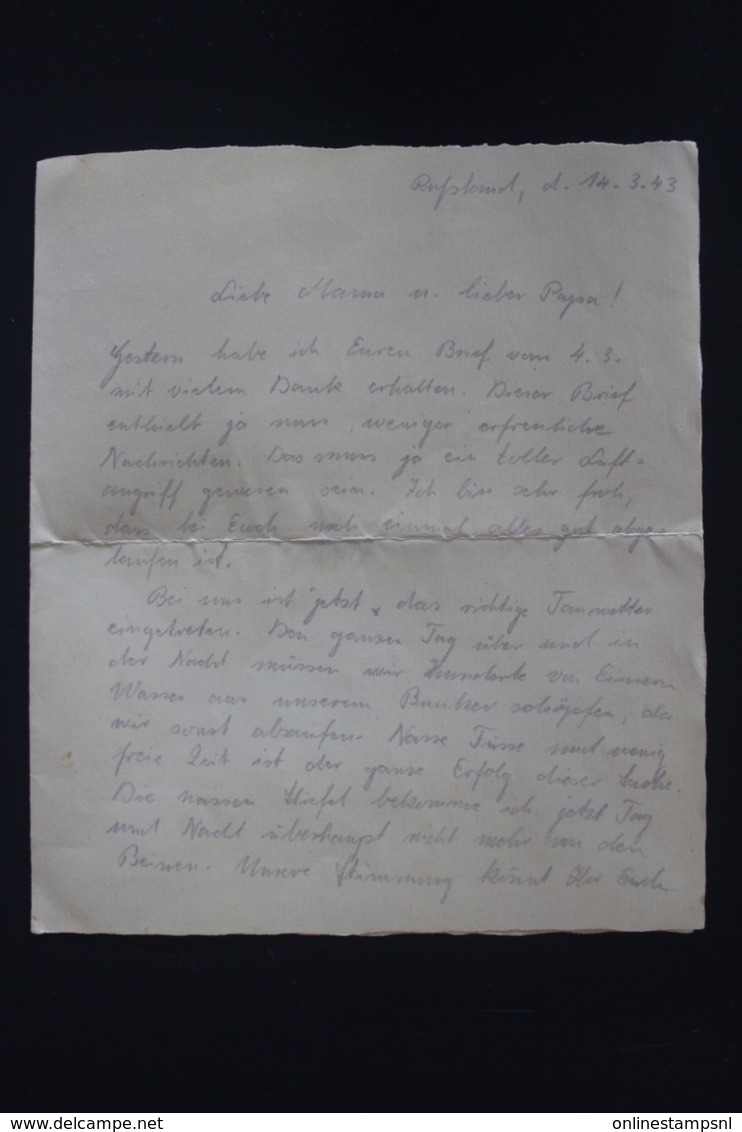 Rußland, d. 14.3.43
Liebe Mama u. lieber Papa!
Gestern habe ich Euren Brief vom 4.3.
mit vielem Dank erhalten. Dieser Brief
enthielt ja nun, weniger erfreuliche
Nachrichten. Das muss ja ein toller Luft=
angriff gewesen sein. Ich bin sehr froh,
dass bei Euch noch einmal alles gut abge
laufen ist.
Bei uns ist jetzt das richtige Tauwetter
eingetreten. Den ganzen Tag über und in
der Nacht müssen wir Hunderte von Eimern
Wasser aus unserem Bunker schöpfen, da
wir sonst absaufen. Nasse Füsse und wenig
freie Zeit ist der ganze Erfolg dieser Sache.
Die nassen Stiefel bekomme ich jetzt Tag
und Nacht überhaupt nicht mehr von den
Beinen. Unsere Stimmung könnt Ihr Euch
www.delcampe.net
onlinestampsnl